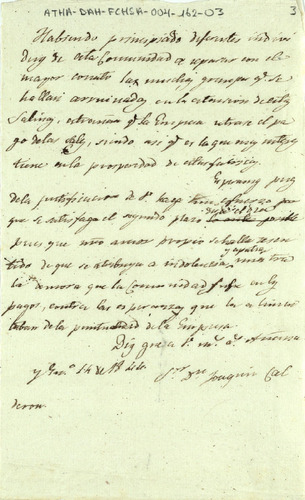 ATHA-DAH-FCHSA-004-162-03
3
Habiendo principiado diferentes individuos
de esta Comunidad a reparar con el
mayor conato las muchas granjas qe. se
hallan arruinadas en la estension de estas
Salinas, estraña qe. la Empresa retrase el pa
go de las sales, siendo asi qe. es la que mas interes
tiene en la prosperidad de estas fabricas.
Espera pues
de la justificacion de V. haga
que se satisfaga el segundo plazo
pues que uno amor propio se halla resen
tido de que se atribuya a indolencia
la demora que la Comunidad sufre en los
pagos, contra las esperanzas que la
taban de la puntualidad de la Empresa.
Dios gue. a V. ms. as. Añana
y 14 de
Sr. Dn. Joaquin Cal
deron.